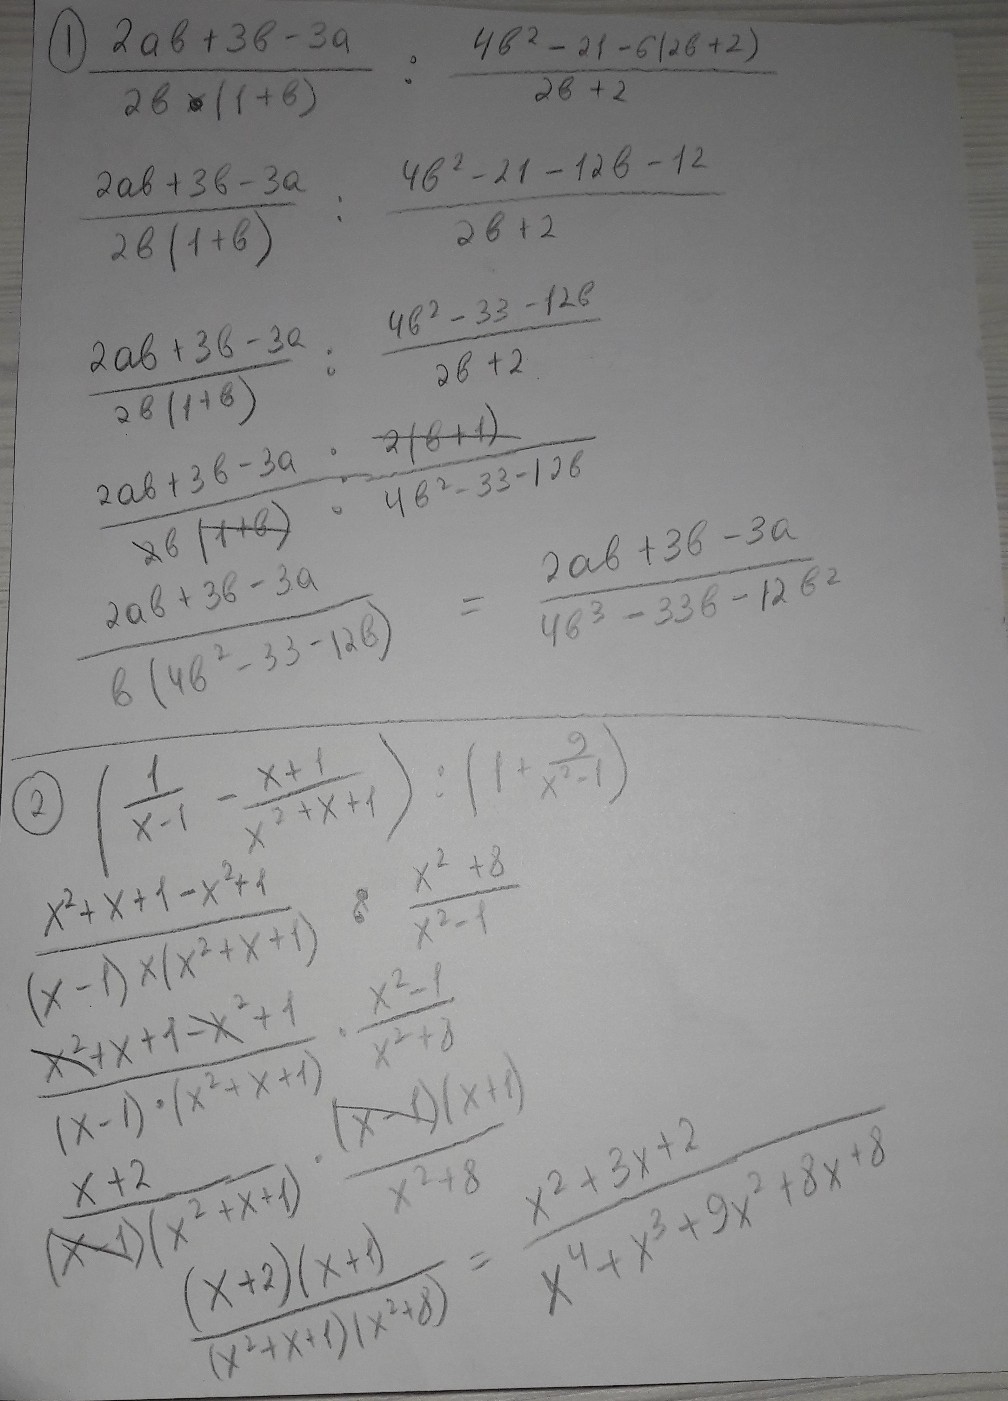 ① (2ab + 3b - 3a)/(2b (1+b)) : (4b² - 21 - 6(2b+2))/(2b+2)
(2ab + 3b - 3a)/(2b(1+b)) : (4b² - 21 - 12b - 12)/(2b+2)
(2ab + 3b - 3a)/(2b(1+b)) : (4b² - 33 - 12b)/(2b+2)
(2ab + 3b - 3a · 2(b+1))/(2b(1+b) · 4b² - 33 - 12b)
(2ab + 3b - 3a)/(b(4b² - 33 - 12b)) = (2ab + 3b - 3a)/(4b³ - 33b - 12b²)
② (1/(x-1) - (x+1)/(x²+x+1)) : (1 + 9/(x²-1))
(x²+x+1-x²+1)/((x-1)×(x²+x+1)) : (x²+8)/(x²-1)
(x²+x+1-x²+1)/((x-1)·(x²+x+1)) · (x²-1)/(x²+8)
(x+2)/((x-1)(x²+x+1)) · ((x-1)(x+1))/(x²+8)
((x+2)(x+1))/((x²+x+1)(x²+8)) = (x²+3x+2)/(x⁴+x³+9x²+8x+8)